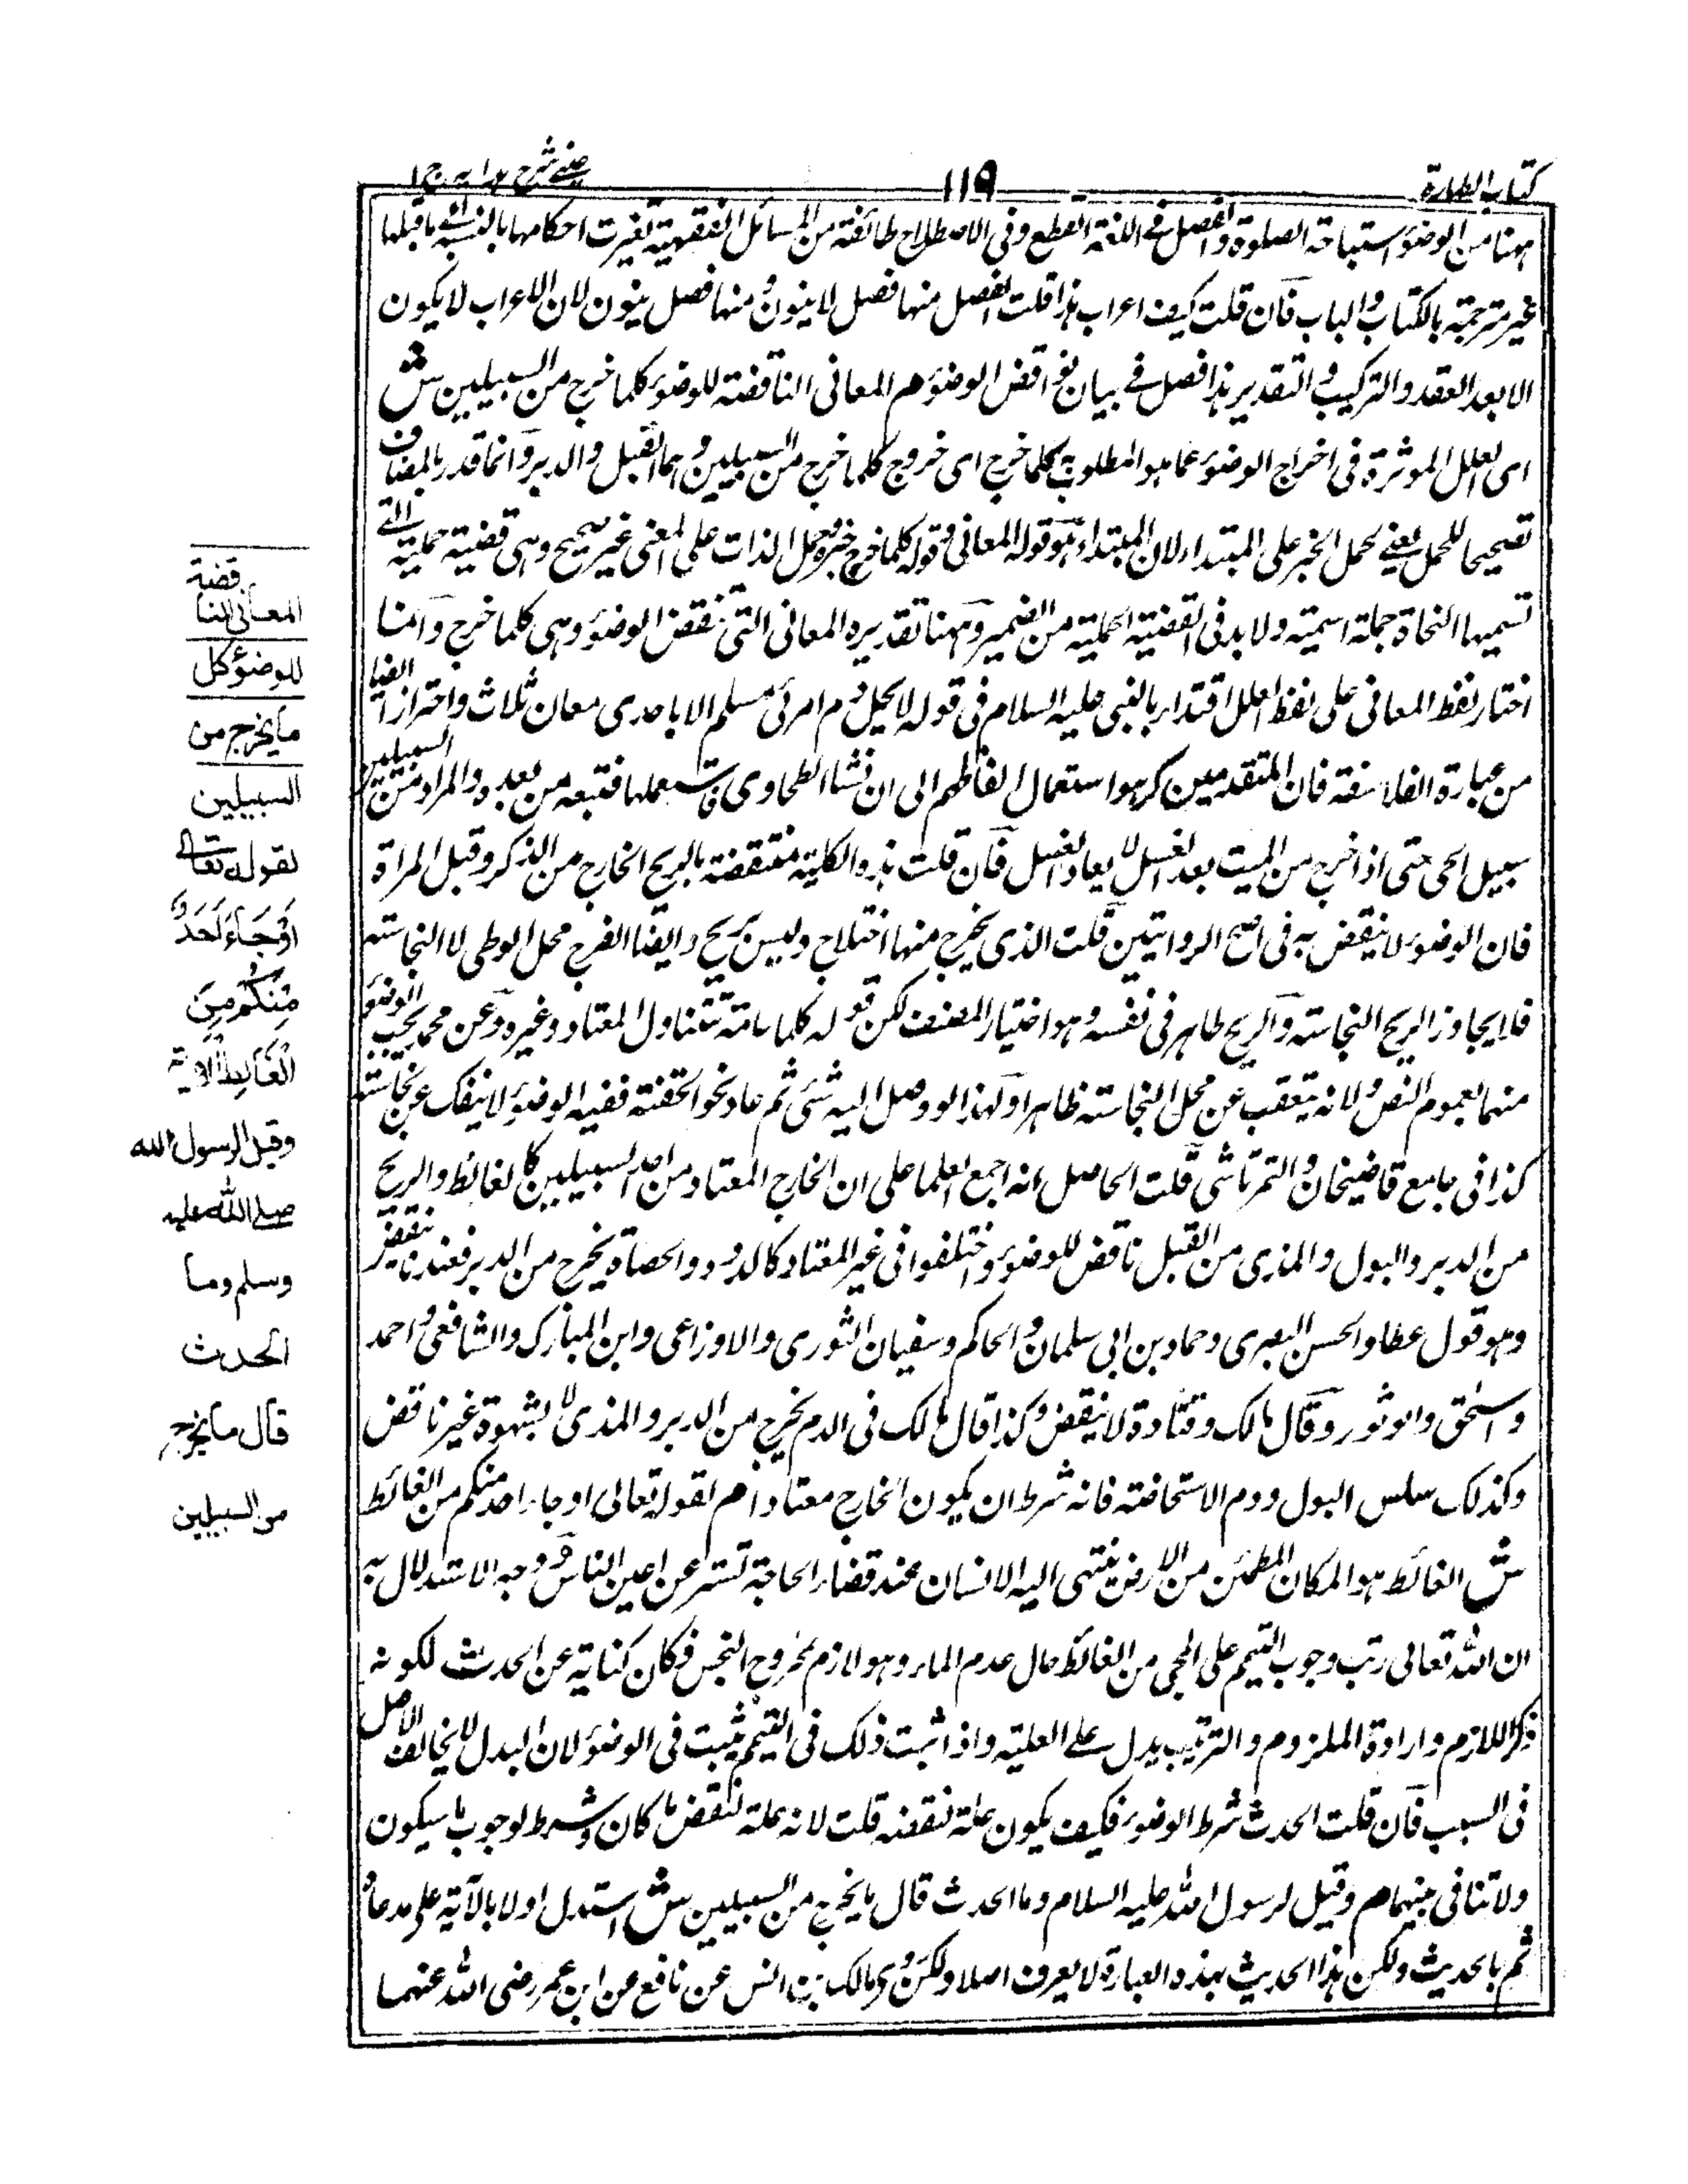 كتاب الطهارة
١١٩
عينى شرح هدايه ج ١
ههنا من الوضوء استباحة الصلوة والفصل فى اللغة القطع وفى الاصطلاح طائفة من المسائل الفقهية تغيرت احكامها بالنسبة الى ما قبلها
غير مترجمة بالكتاب والباب فان قلت كيف اعراب هذا قلت الفصل منها فصل لا ينون ومنها فصل ينون لان الاعراب لا يكون
الا بعد العقد والتركيب والتقدير هذا فصل فى بيان نواقض الوضوء م المعانى الناقضة للوضوء كلما خرج من السبيلين ش
اى العلل الموثرة فى اخراج الوضوء عما هو المطلوب كلما خرج اى خروج كلما خرج من السبيلين وهما القبل والدبر وانما قدر بالمضاف
تصحيحا للحمل يعنى لحمل الخبر على المبتداء لان المبتداء هو قوله المعانى وقوله كلما خرج خبره وحمل الذات على المعنى غير صحيح وهى قضية حملية التى
تسميها النحاة جملة اسمية ولا بد فى القضية الحملية من الضمير وههنا تقديره المعانى التى تنقض الوضوء وهى كلما خرج وانما
اختار لفظ المعانى على لفظ العلل اقتداء بالنبى عليه السلام فى قوله لا يحل دم امرئ مسلم الا باحدى معان ثلاث واحترازا ايضا
من عبارة الفلاسفة فان المتقدمين كرهوا استعمال الفاظهم الى ان نشا الطحاوى فاستعملها فتبعه من بعده والمراد من السبيلين
سبيل الحى حتى اذا خرج من الميت بعد الغسل لا يعاد الغسل فان قلت هذه الكلية منتقضة بالريح الخارج من الذكر وقبل المراة
فان الوضوء لا ينتقض به فى اصح الروايتين قلت الذى يخرج منها اختلاج وليس بريح وايضا الفرج محل الوطى لا النجاسة
فلا يجاوز الريح النجاسة والريح طاهر فى نفسه وهو اختيار المصنف لكن قوله كلما عامة تتناول المعتاد وغيره وعن محمد يجب الوضوء
منهما لعموم النص ولانه يتعقب عن محل النجاسة ظاهرا ولهذا لو وصل اليه شئ ثم عاد نحو الحقنة ففيه الوضوء لا ينفك عن نجاسة
كذا فى جامع قاضيخان والتمرتاشى قلت الحاصل انه اجمع العلما على ان الخارج المعتاد من احد السبيلين كالغائط والريح
من الدبر والبول والمذى من القبل ناقض للوضوء واختلفوا فى غير المعتاد كالدود والحصاة يخرج من الدبر فعندنا ينقض
وهو قول عطا والحسن البصرى وحماد بن ابى سلمان والحاكم وسفيان الثورى والاوزاعى وابن المبارك والشافعى واحمد
واسحق وابو ثور وقال مالك وقتادة لا ينقض وكذا قال مالك فى الدم يخرج من الدبر والمذى لا بشهوة غير ناقض
وكذلك سلس البول ودم الاستحاضة فانه شرط ان يكون الخارج معتادا م لقوله تعالى او جاء احد منكم من الغائط
ش الغائط هو المكان المطمئن من الارض ينتهى اليه الانسان عند قضاء الحاجة تستر عن اعين الناس ووجه الاستدلال به
ان الله تعالى رتب وجوب التيمم على المجى من الغائط حال عدم الماء وهو لازم لخروج النجس فكان كناية عن الحدث لكونه
ذكر اللازم وارادة الملزوم والترتيب يدل على العلية واذا ثبت ذلك فى التيمم ثبت فى الوضوء لان البدل لا يخالف الاصل
فى السبب فان قلت الحدث شرط الوضوء فكيف يكون علة لنقضه قلت لانه علة لنقض ما كان وشرط لوجوب ما سيكون
ولا تنافى بينهما م وقيل لرسول الله عليه السلام وما الحدث قال ما يخرج من السبيلين ش استدل اولا بالآية على مدعاه
ثم بالحديث ولكن هذا الحديث بهذه العبارة لا يعرف اصلا ولكن روى مالك بن انس عن نافع عن ابن عمر رضى الله عنهما
المعانى النا
قضة
للوضوء كل
ما يخرج من
السبيلين
لقوله تعالى
اَوْ جَاءَ اَحَدٌ
مِنْكُمْ مِنَ
الْغَائِطِ الاية
وقيل لرسول الله
صلى الله عليه
وسلم وما
الحدث
قال ما يخرج
من السبيلين